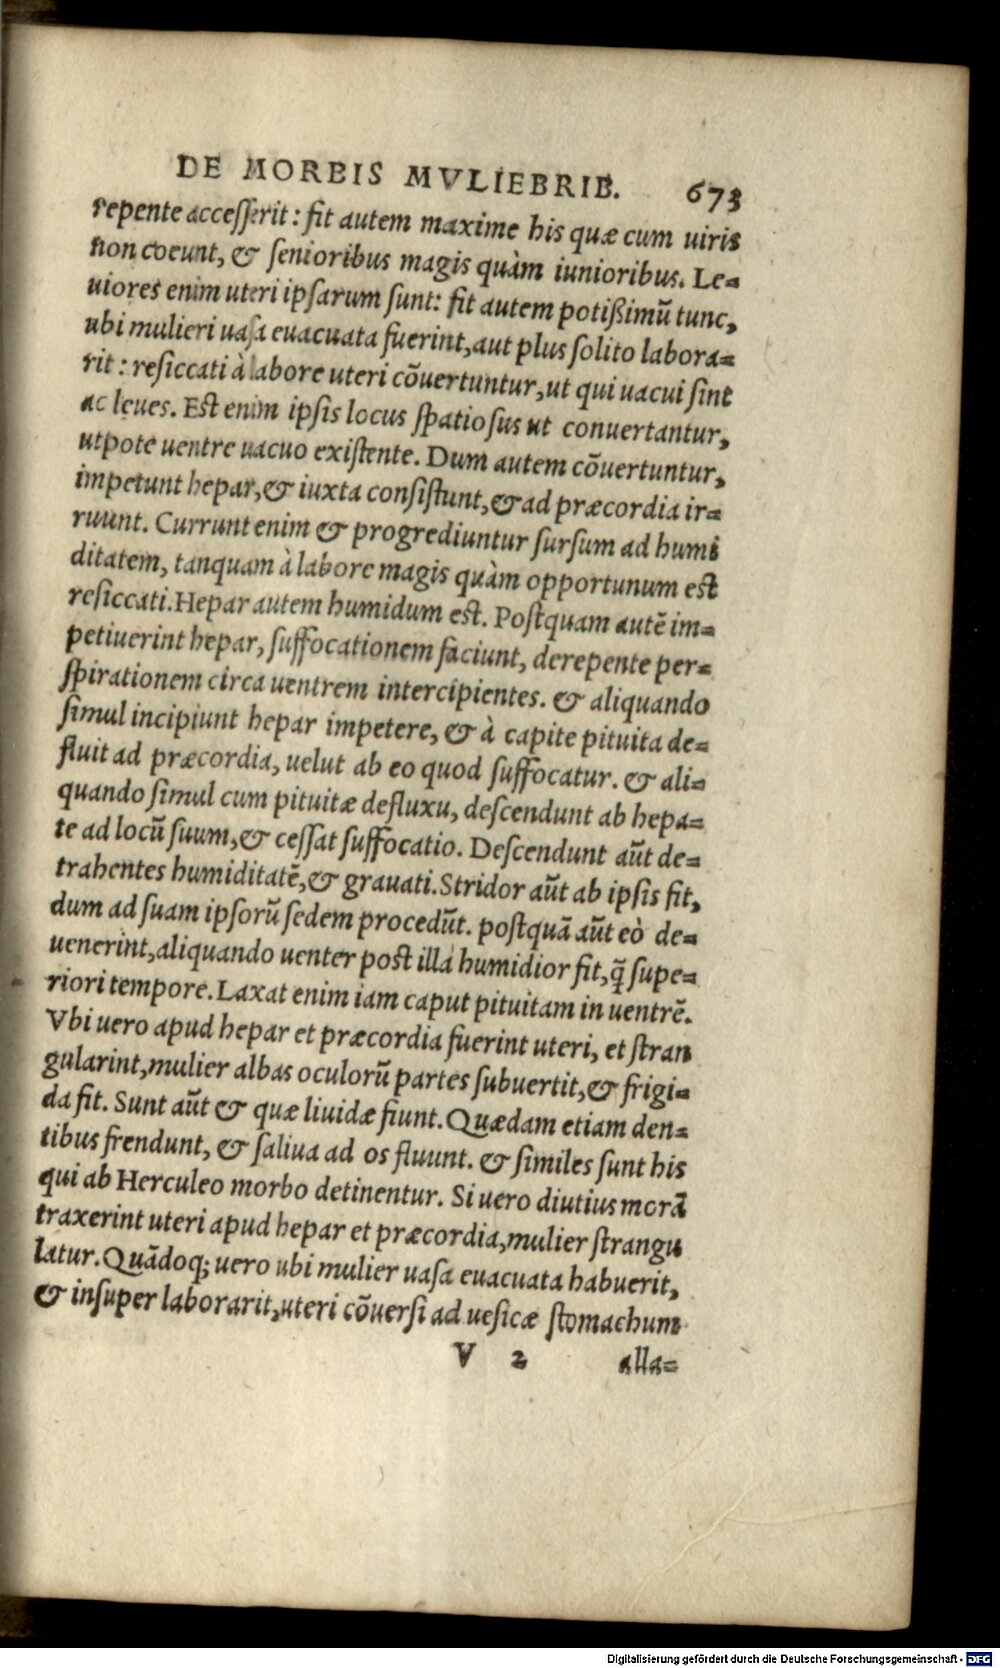 DE MORBIS MVLIEBRIB. 673
repente accesserit: fit autem maxime his quæ cum uiris
non coeunt, & senioribus magis quàm iunioribus. Le-
uiores enim uteri ipsarum sunt: fit autem potißimũ tunc,
ubi mulieri uasa euacuata fuerint, aut plus solito labora-
rit: resiccati à labore uteri cõuertuntur, ut qui uacui sint
ac leues. Est enim ipsis locus spatiosus ut conuertantur,
utpote uentre uacuo existente. Dum autem cõuertuntur,
impetunt hepar, & iuxta consistunt, & ad præcordia ir-
ruunt. Currunt enim & progrediuntur sursum ad humi
ditatem, tanquam à labore magis quàm opportunum est
resiccati. Hepar autem humidum est. Postquam autẽ im-
petiuerint hepar, suffocationem faciunt, derepente per-
spirationem circa uentrem intercipientes. & aliquando
simul incipiunt hepar impetere, & à capite pituita de-
fluit ad præcordia, uelut ab eo quod suffocatur. & ali-
quando simul cum pituitæ defluxu, descendunt ab hepa-
te ad locũ suum, & cessat suffocatio. Descendunt aũt de-
trahentes humiditatẽ, & grauati. Stridor aũt ab ipsis fit,
dum ad suam ipsorũ sedem procedũt. postquã aũt eò de-
uenerint, aliquando uenter post illa humidior fit, q̃ supe-
riori tempore. Laxat enim iam caput pituitam in uentrẽ.
Vbi uero apud hepar et præcordia fuerint uteri, et stran
gularint, mulier albas oculorũ partes subuertit, & frigi-
da fit. Sunt aũt & quæ liuidæ fiunt. Quædam etiam den-
tibus frendunt, & saliua ad os fluunt. & similes sunt his
qui ab Herculeo morbo detinentur. Si uero diutius morã
traxerint uteri apud hepar et præcordia, mulier strangu
latur. Quãdoq; uero ubi mulier uasa euacuata habuerit,
& insuper laborarit, uteri cõuersi ad uesicæ stomachum
V 2 alla-
Digitalisierung gefördert durch die Deutsche Forschungsgemeinschaft - DFG